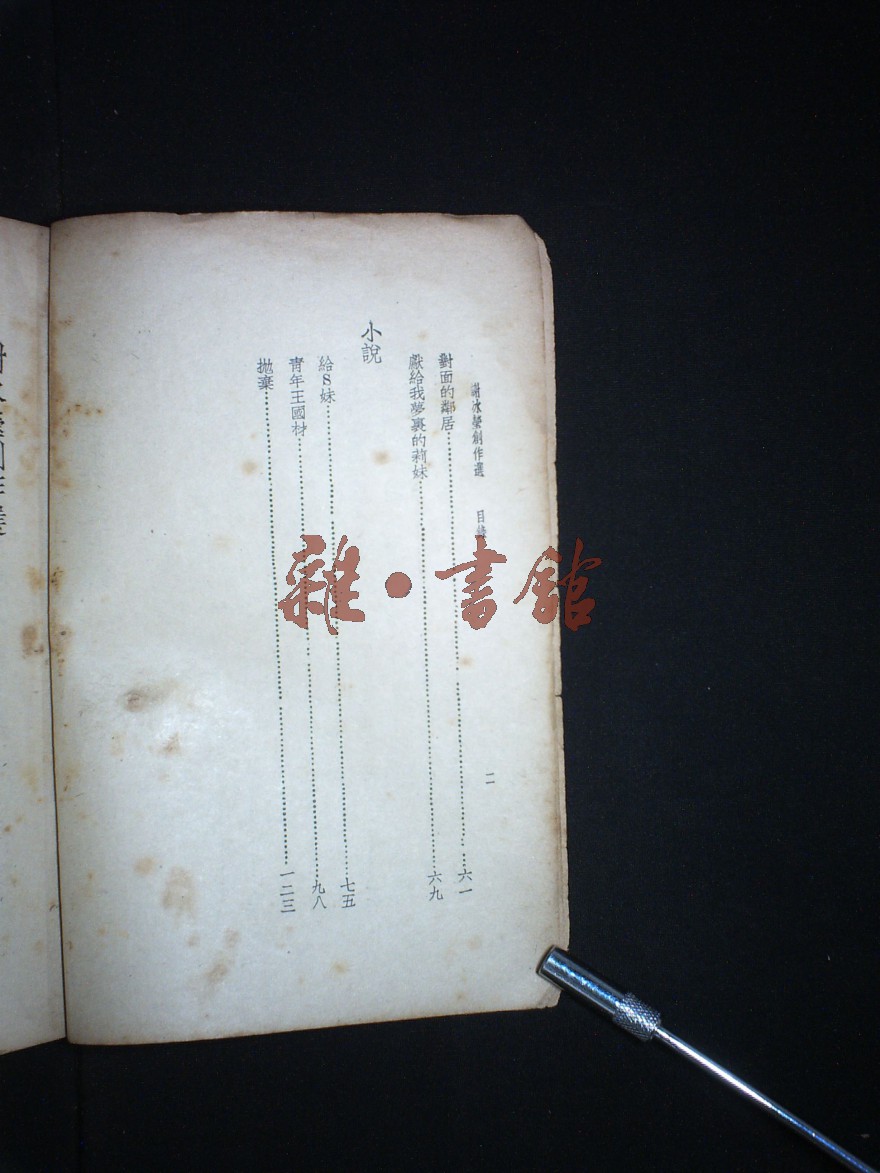 謝冰瑩創作選 目錄 二
對面的鄰居 六一
獻給我夢裏的莉妹 六九
小說
給S妹 七五
青年王國材 九八
拋棄 一二三
雜·書館